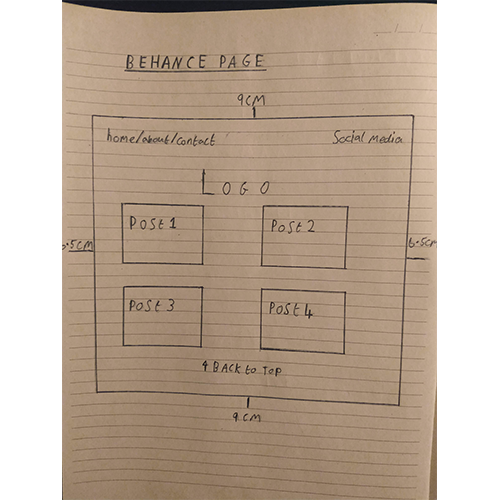 BEHANCE PAGE
9CM
home/about/contact Social media
LOGO
Post 1 Post 2
.5CM 6.5CM
Post 3 Post 4
↑ BACK to Top
9CM